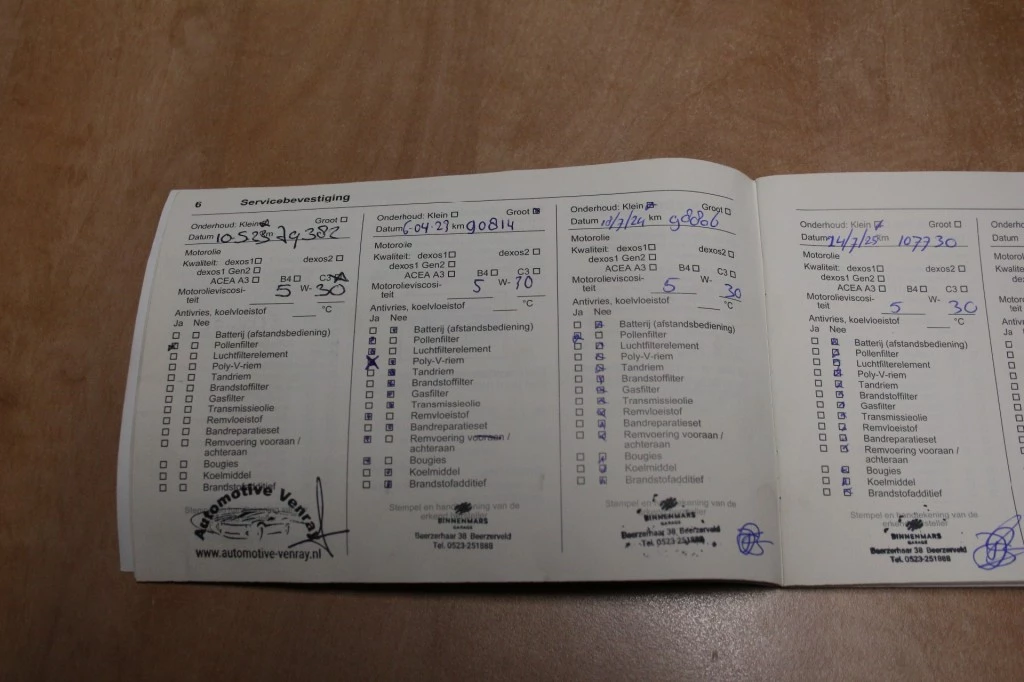 6 Servicebevestiging
Onderhoud: Klein Groot
Datum 10-5-23 km 79382
Motorolie
Kwaliteit: dexos1 dexos2
dexos1 Gen2
ACEA A3 B4 C3
Motorolieviscosi- 5 W- 30
teit
Antivries, koelvloeistof °C
Ja Nee
Batterij (afstandsbediening)
Pollenfilter
Luchtfilterelement
Poly-V-riem
Tandriem
Brandstoffilter
Gasfilter
Transmissieolie
Remvloeistof
Bandreparatieset
Remvoering vooraan /
achteraan
Bougies
Koelmiddel
Brandstofadditief
Automotive Venray
www.automotive-venray.nl
Onderhoud: Klein Groot
Datum 6-04-23 km 90814
Motorolie
Kwaliteit: dexos1 dexos2
dexos1 Gen2
ACEA A3 B4 C3
Motorolieviscosi- 5 W-
teit
Antivries, koelvloeistof °C
Ja Nee
Batterij (afstandsbediening)
Pollenfilter
Luchtfilterelement
Poly-V-riem
Tandriem
Brandstoffilter
Gasfilter
Transmissieolie
Remvloeistof
Bandreparatieset
Remvoering vooraan /
achteraan
Bougies
Koelmiddel
Brandstofadditief
Stempel en handtekening van de
BINNENMARS
GARAGE
Beerzerhaar 38 Beerzerveld
Tel. 0523-251888
Onderhoud: Klein Groot
Datum /7/24 km 98806
Motorolie
Kwaliteit: dexos1 dexos2
dexos1 Gen2
ACEA A3 B4 C3
Motorolieviscosi- 5 W- 30
teit
Antivries, koelvloeistof °C
Ja Nee
Batterij (afstandsbediening)
Pollenfilter
Luchtfilterelement
Poly-V-riem
Tandriem
Brandstoffilter
Gasfilter
Transmissieolie
Remvloeistof
Bandreparatieset
Remvoering vooraan /
achteraan
Bougies
Koelmiddel
Brandstofadditief
Stempel en handtekening van de
BINNENMARS
GARAGE
Beerzerhaar 38 Beerzerveld
Tel. 0523-251888
Onderhoud: Klein Groot
Datum 24/7/25 km 107730
Motorolie
Kwaliteit: dexos1 dexos2
dexos1 Gen2
ACEA A3 B4 C3
Motorolieviscosi- 5 W- 30
teit
Antivries, koelvloeistof °C
Ja Nee
Batterij (afstandsbediening)
Pollenfilter
Luchtfilterelement
Poly-V-riem
Tandriem
Brandstoffilter
Gasfilter
Transmissieolie
Remvloeistof
Bandreparatieset
Remvoering vooraan /
achteraan
Bougies
Koelmiddel
Brandstofadditief
Stempel en handtekening van de
BINNENMARS
GARAGE
Beerzerhaar 38 Beerzerveld
Tel. 0523-251888